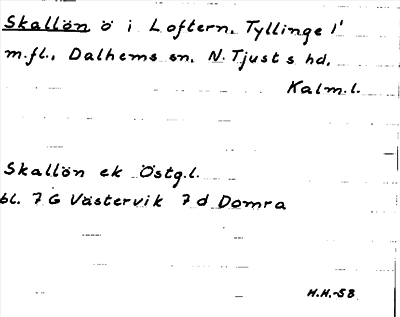 Skallön ö i Loftern, Tyllinge 1'
m.fl., Dalhems sn, N. Tjusts hd,
Kalm.l.
Skallön ek Östg.l.
bl. 7 G Västervik 7 d Domra
H.H.-58